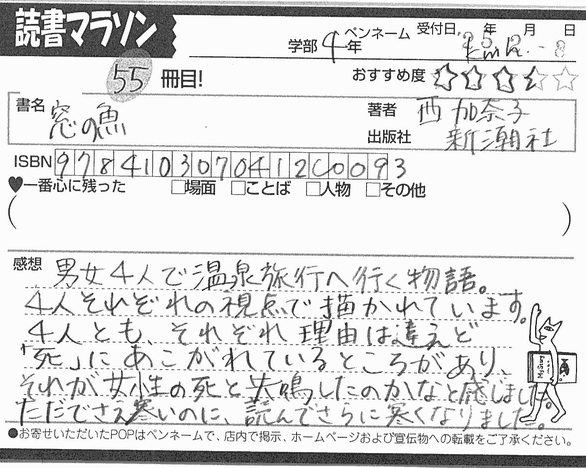 読書マラソン
学部 4年 ペンネーム 受付日 年 月 日
55 冊目! おすすめ度
書名 窓の魚 著者 西加奈子
出版社 新潮社
ISBN 9784103070412C0093
♥一番心に残った □場面 □ことば □人物 □その他
( )
感想 男女4人で温泉旅行へ行く物語。
4人それぞれの視点で描かれています。
4人とも、それぞれ理由は違えど
「死」にあこがれているところがあり、
それが女性の死と共鳴したのかなと感じました。
ただでさえ寒いのに、読んでさらに寒くなりました。
●お寄せいただいたPOPはペンネームで、店内で掲示、ホームページおよび宣伝物への転載をご了承ください。